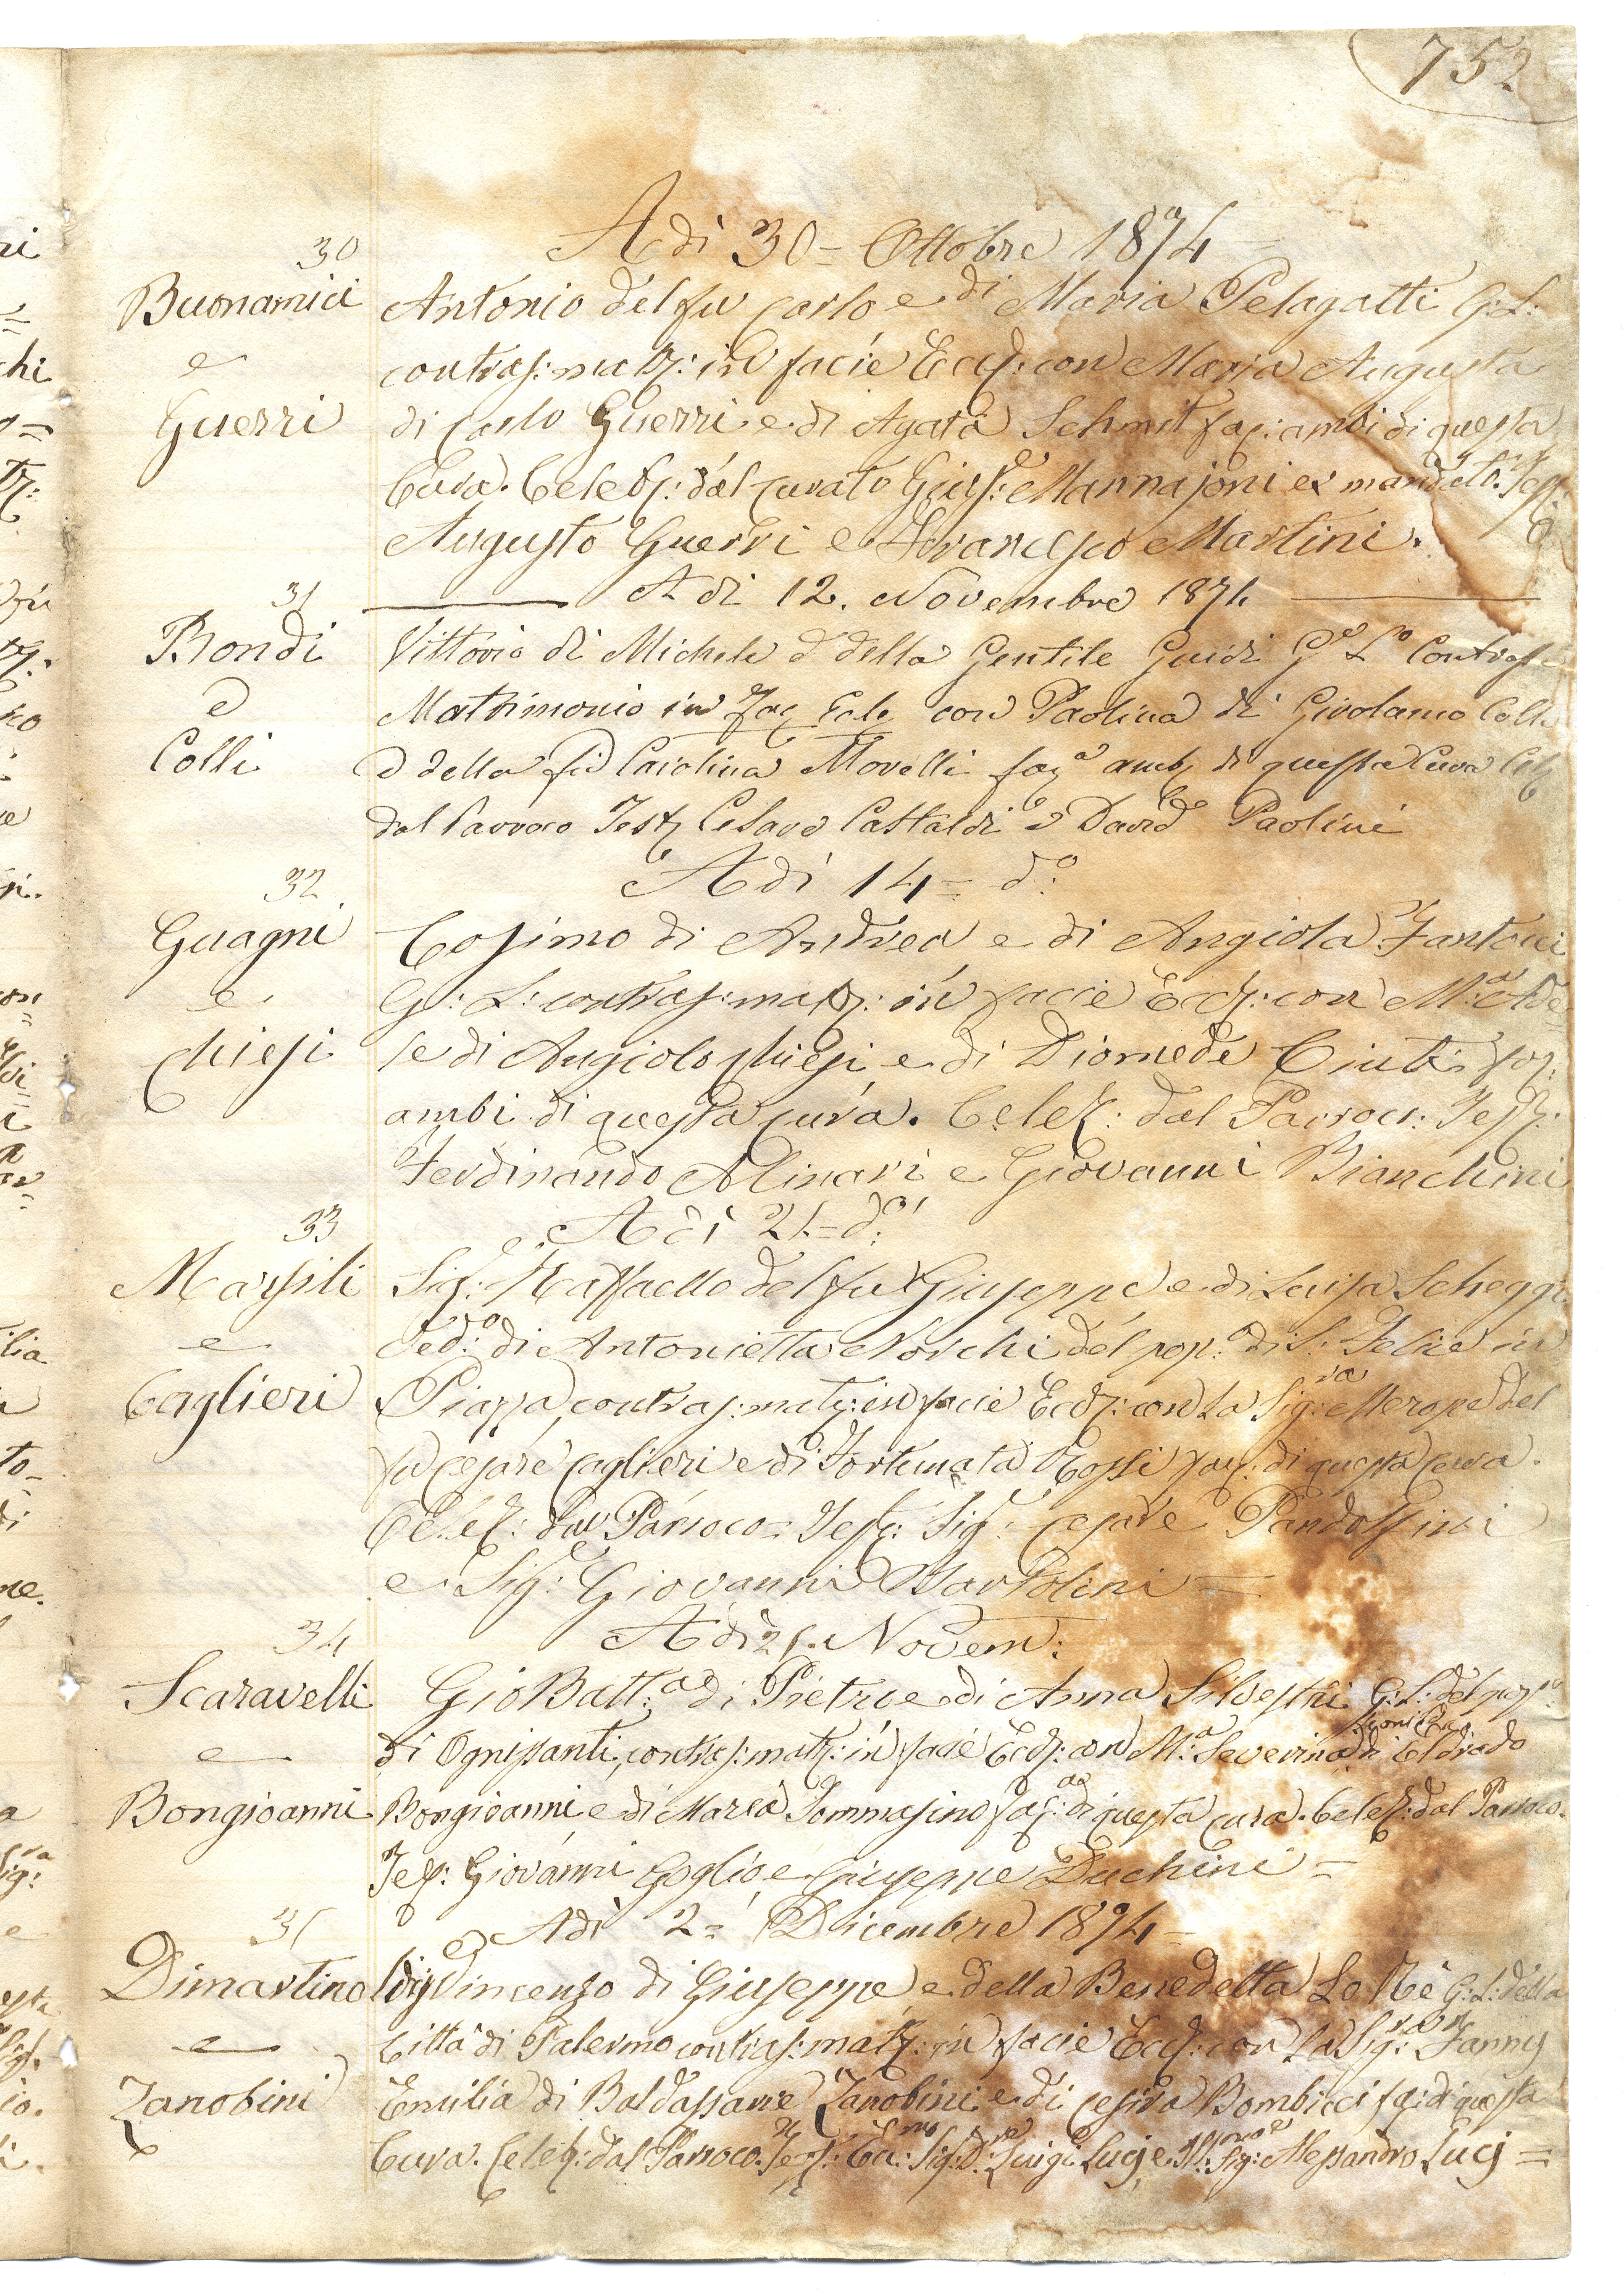 752
Adì 30 = Ottobre 1874 =
30
Buonamici
e
Guerri
Antonio del fu Carlo e di Maria Pelagatti G: L:
contras: matr: in facie Eccl: con Maria Augusta
di Carlo Guerri e di Agata Schmit fac: ambi di questa
Cura. Celebr: dal Curato Gius: Mannajoni ex mandato. Test:
Augusto Guerri e Francesco Martini.
Adì 12. Novembre 1874
31
Bondi
e
Colli
Vittorio di Michele e della Gentile Guidi Gº Lº Contrass
Matrimonio in Fac Ecle con Paolina di Girolamo Colli
e della fu Carolina Morelli faca amb di questa Cura Cele
dal Parroco Test Cesare Castaldi e David Paolini
Adì 14 = dº:
32
Guagni
e
Chiesi
Cosimo di Andrea e di Angiola Fantocci
G: L: contras: matr: in facie Eccl: con M:a Ade
le di Angiolo Chiesi e di Diomede Ciuti fac:
ambi di questa cura. Celeb: dal Parroc: Test:
Ferdinando Alinari e Giovanni Bianchini
Adì 21 = dº:
33
Marsili
e
Caglieri
Sig:e Raffaello del fu Giuseppe e di Luisa Scheggi
Ved:o di Antonietta Noschi del pop:o di S: Felice in
Piazza, contras: matr: in facie Eccl: con la Sig:ra Merope del
fu Cesare Caglieri e di Fortunata Rossi fac: di questa cura.
Celeb: dal Parroco = Test: Sig: Cesare Pandolfini
e Sig:e Giovanni Bartolini =
Adì 21. Novem:
34
Scaravelli
e
Bongioanni
Gio Batt:a di Pietro e di Anna Silvestri G: L: del pop:o
di Ognissanti, contras: matr: in facie Eccl: con M:a Severina di Eldrado
Bongioanni e di Maria Tommasino fac: di questa cura. Celeb: dal Parroco.
Test: Giovanni Goglio e Giuseppe Duchini =
Adì 2 = Dicembre 1874 =
35
Dimartino
e
Zanobini
Sig:e Vincenzo di Giuseppe e della Benedetta Lo Re G: L: della
Città di Palermo contras: matr: in facie Eccl: con la Sig:ra Fanny
Emilia di Baldassarre Zanobini e di Cesira Bombicci fac: di questa
Cura. Celeb: dal Parroco. Test: Ecc:mo Sig:re D: Luigi Lucj e Ill:mo Sig:e Alessandro Lucj =